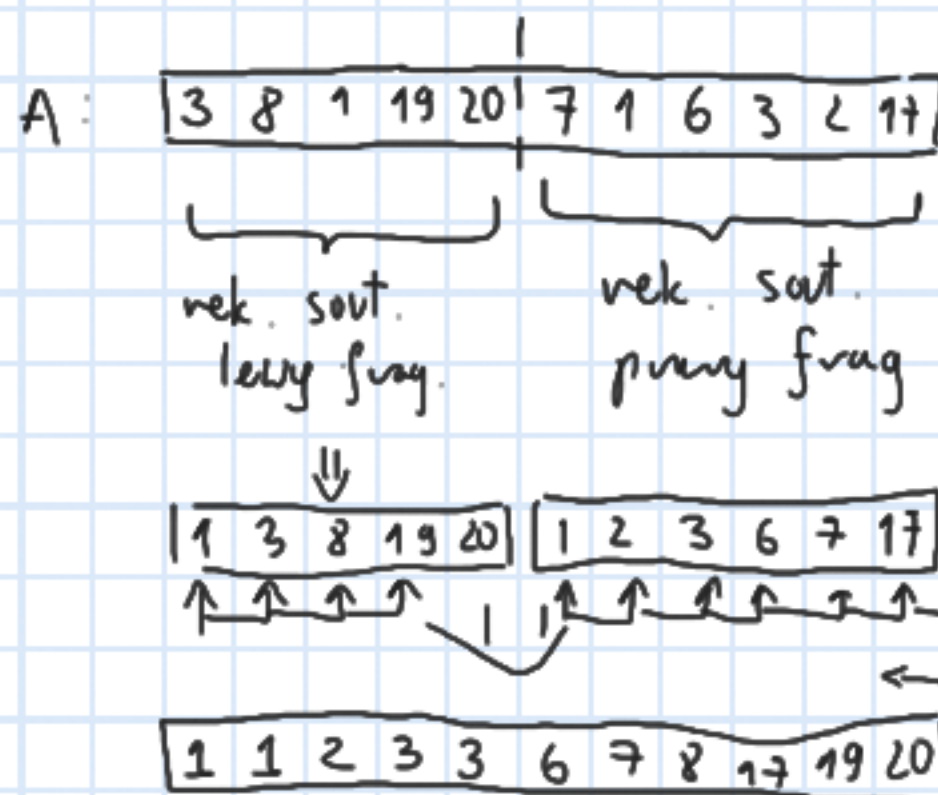 A: 3 8 1 19 20 7 1 6 3 2 17
rek. sort. rek. sort.
lewy frag. prawy frag
1 3 8 19 20 1 2 3 6 7 17
1 1 2 3 3 6 7 8 17 19 20